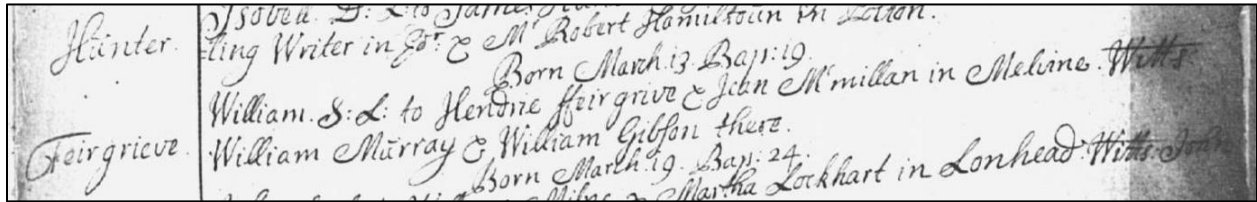 Isobell. D: L: to James
Hunter. ling Writer in Jo.r & Mr Robert Hamiltoun in Lolton.
Born March. 13. Bap: 19.
William. S: L: to Hendrie ffeirgrive & Jean Mcmillan in Melvine. Witts.
Feirgrieve. William Murray & William Gibson there.
Born March. 19. Bap: 24.
Milne & Martha Lockhart in Lonhead. Witts. John